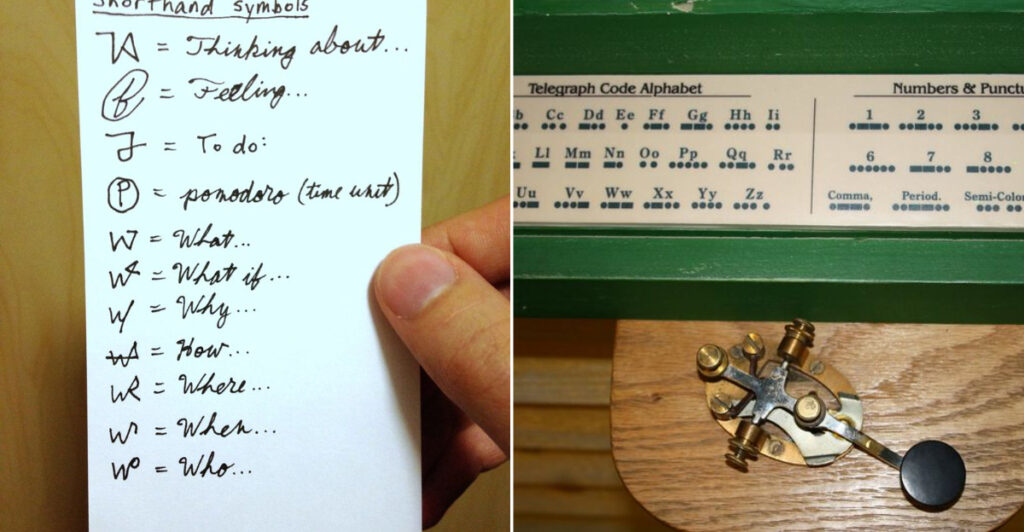 Shorthand symbols
= Thinking about...
= Feeling...
= To do:
P = pomodoro (time unit)
= What...
= What if...
= Why...
= How...
= Where...
= When...
= Who...
Telegraph Code Alphabet
b Cc Dd Ee Ff Gg Hh Ii
Ll Mm Nn Oo Pp Qq Rr
Uu Vv Ww Xx Yy Zz
Numbers & Punctu
1 2 3
6 7 8
Comma, Period. Semi-Colo